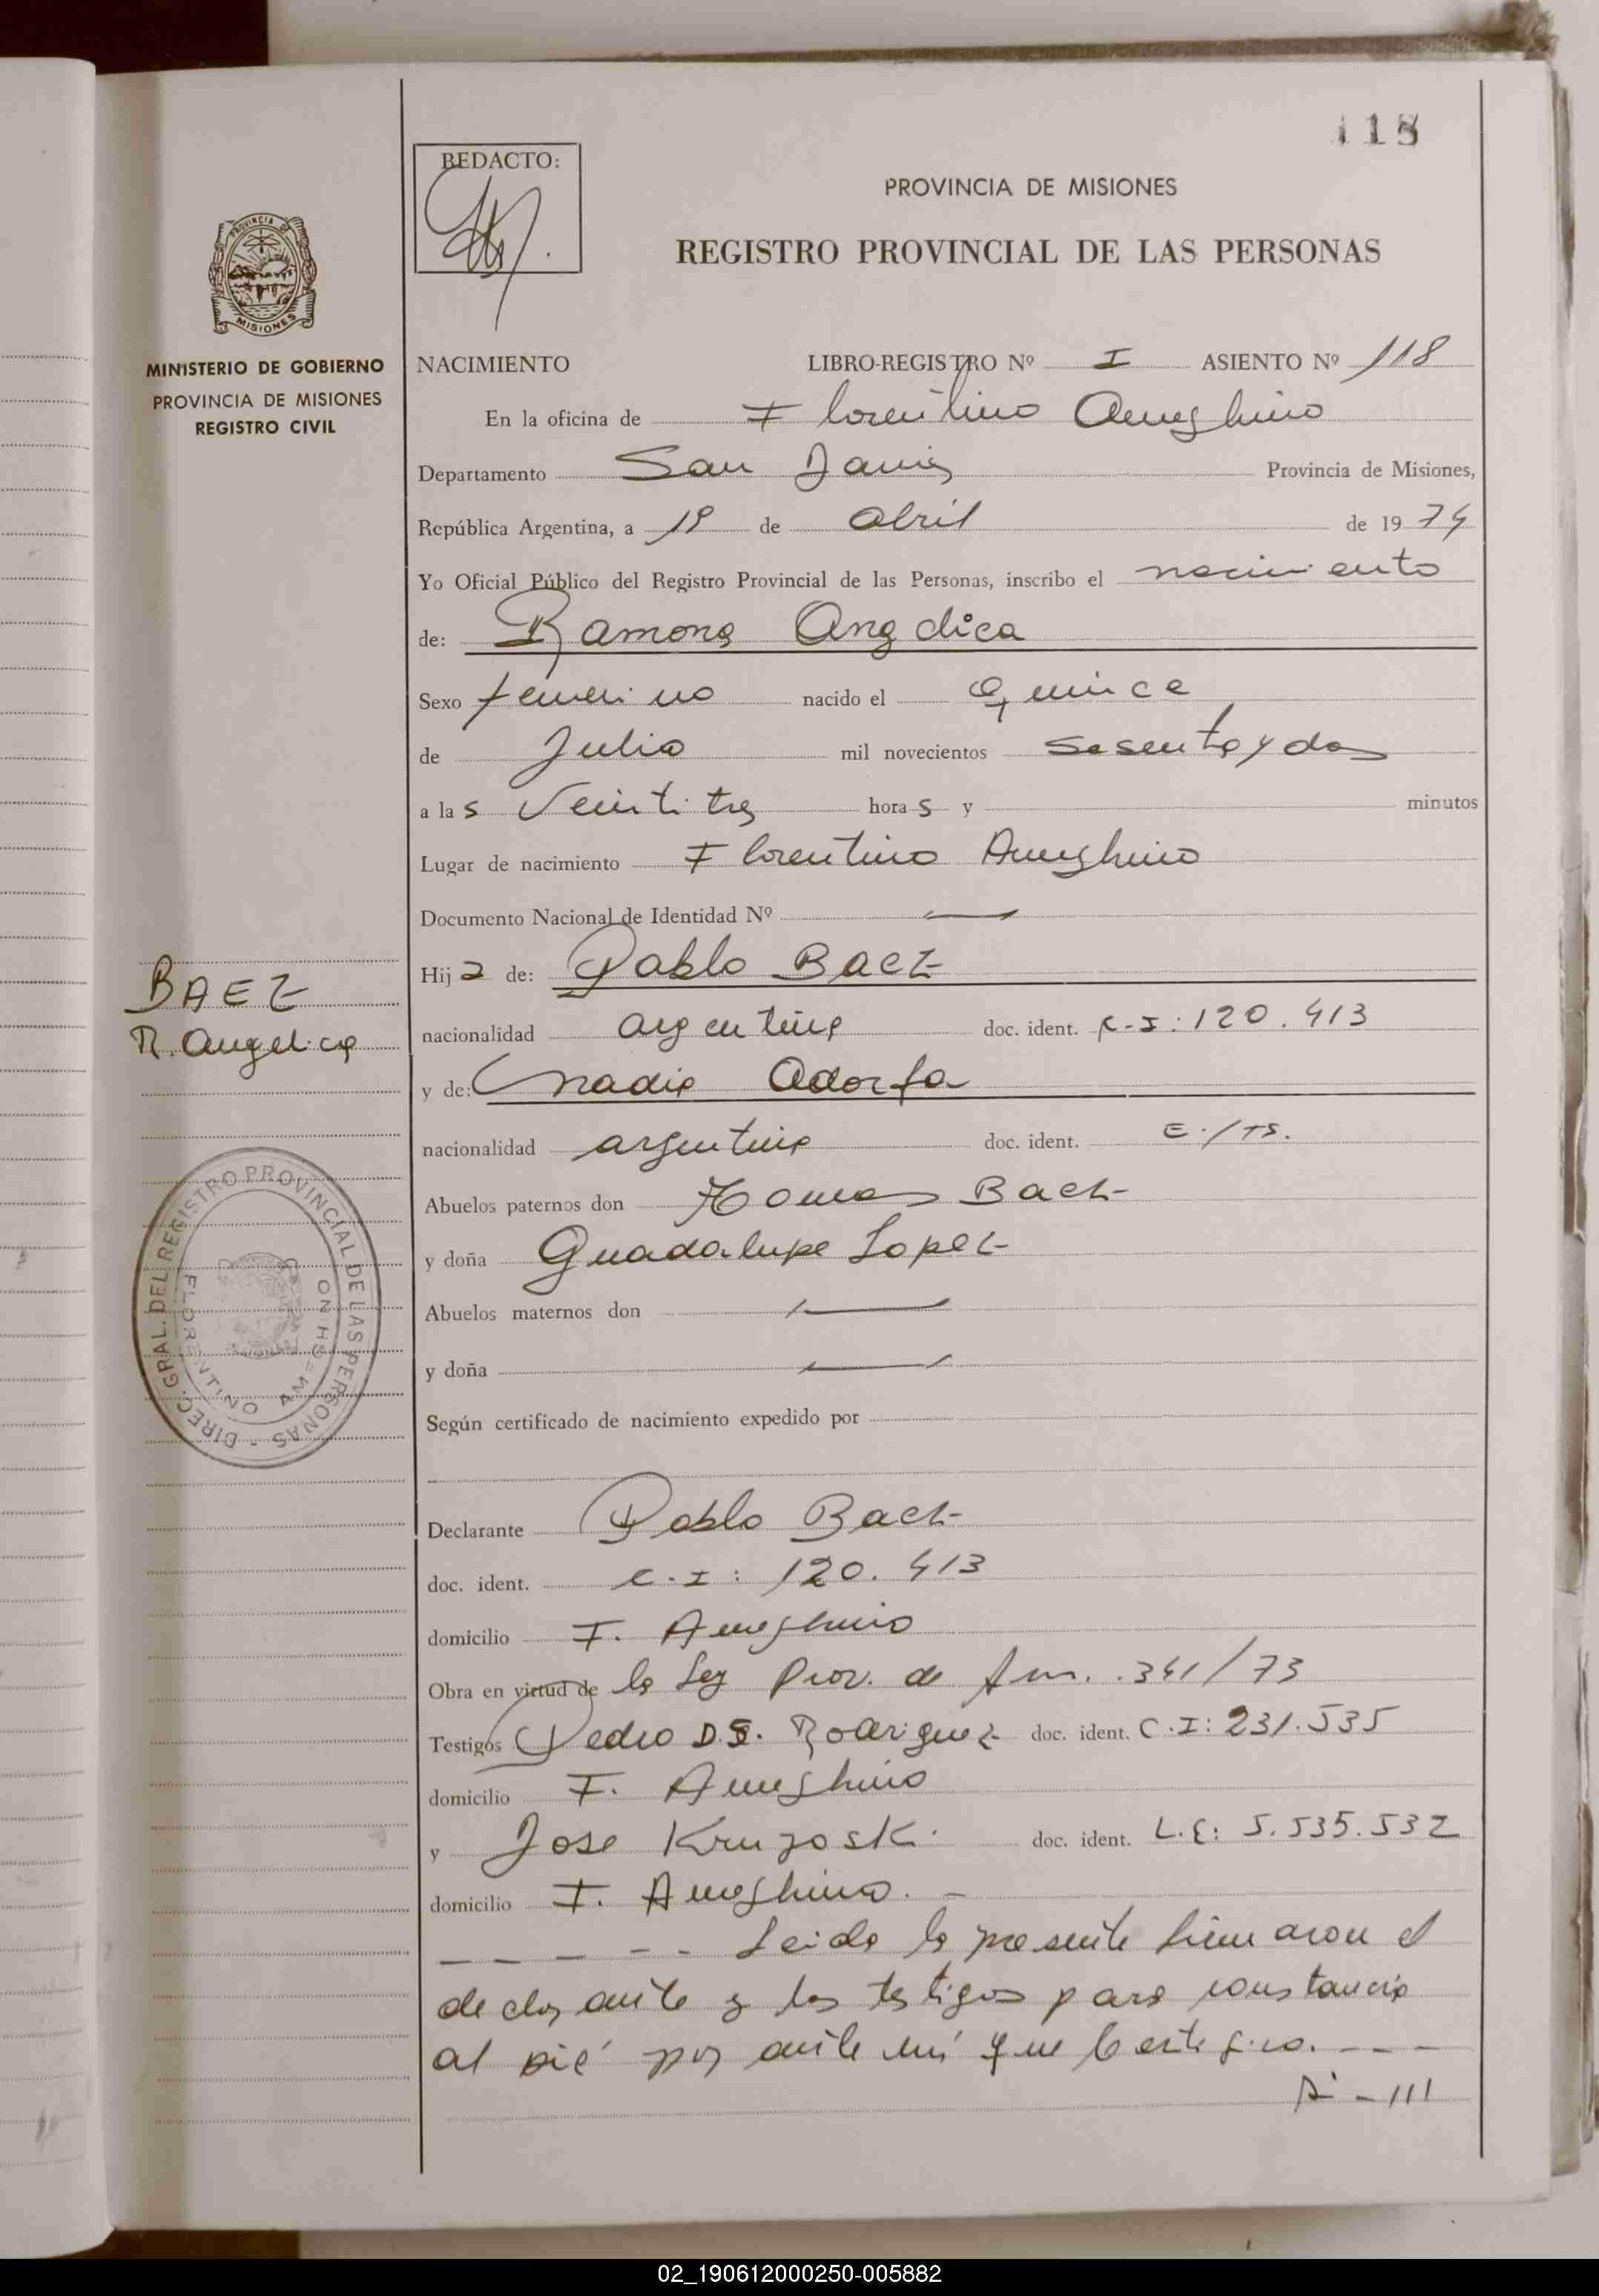 118
REDACTO:
PROVINCIA DE MISIONES
REGISTRO PROVINCIAL DE LAS PERSONAS
PROVINCIA DE
MISIONES
MINISTERIO DE GOBIERNO
PROVINCIA DE MISIONES
REGISTRO CIVIL
NACIMIENTO LIBRO-REGISTRO Nº I ASIENTO Nº 118
En la oficina de Florentino Ameghino
Departamento San Javier Provincia de Misiones,
República Argentina, a 19 de abril de 1974
Yo Oficial Público del Registro Provincial de las Personas, inscribo el nacimiento
de: Ramona Angelica
Sexo femenino nacido el Quince
de Julio mil novecientos sesenta y dos
a las Veintitres horas y minutos
Lugar de nacimiento Florentino Ameghino
Documento Nacional de Identidad Nº —
Hija de: Pablo Baez
BAEZ
R. Angelica
nacionalidad argentina doc. ident. C.I: 120.413
y de: Nadia Adorfa
nacionalidad argentina doc. ident.
Abuelos paternos don Baez
y doña Guadalupe Lopez
Abuelos maternos don —
y doña —
Según certificado de nacimiento expedido por
DIREC. GRAL. DEL REGISTRO PROVINCIAL DE LAS PERSONAS -
FLORENTINO AMEGHINO
Declarante Pablo Baez
doc. ident. C.I: 120.413
domicilio F. Ameghino
Obra en virtud de la Ley Prov. de Am. 341/73
Testigos Pedro D.S. Rodriguez doc. ident. C.I: 231.535
domicilio F. Ameghino
y Jose doc. ident. L.E: 5.535.532
domicilio F. Ameghino. —
— — — — - Leida la presente firmaron el
declarante y los testigos para constancia
al pié por ante mi que certifico. — — —
- 111
02_190612000250-005882